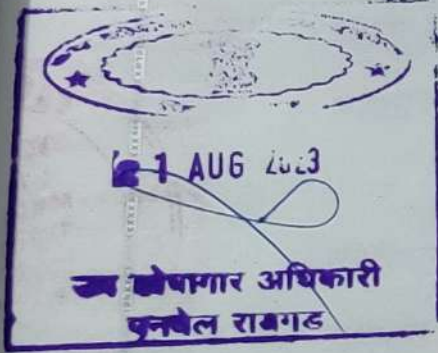 1 AUG 2023
उप कोषागार अधिकारी
पनवेल रायगड